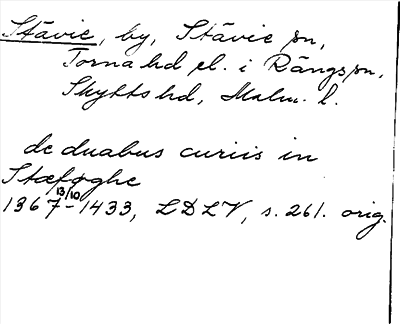 Stävie, by, Stävie sn,
Torna hd el. i Rängs sn,
Skytts hd, Malm. l.
de duabus curiis in
Stæføghe
1367 13/10 - 1433, LDLV, s. 261. orig.